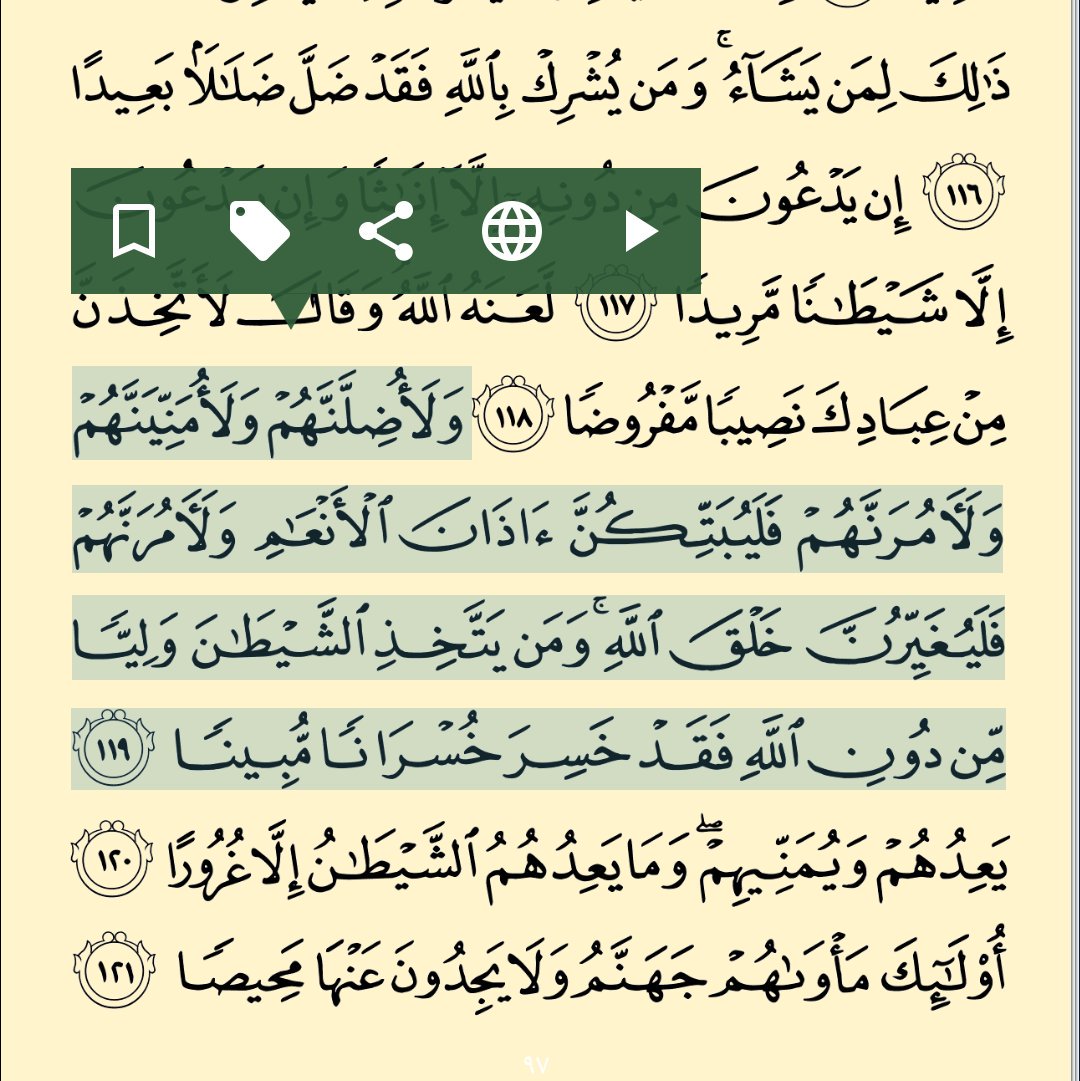 ذَٰلِكَ لِمَن يَشَآءُ ۚ وَمَن يُشْرِكْ بِٱللَّهِ فَقَدْ ضَلَّ ضَلَٰلًۢا بَعِيدًا
١١٦ إِن يَدْعُونَ مِن دُونِهِۦٓ إِلَّآ إِنَٰثًا وَإِن يَدْعُونَ
إِلَّا شَيْطَٰنًا مَّرِيدًا ١١٧ لَّعَنَهُ ٱللَّهُ وَقَالَ لَأَتَّخِذَنَّ
مِنْ عِبَادِكَ نَصِيبًا مَّفْرُوضًا ١١٨ وَلَأُضِلَّنَّهُمْ وَلَأُمَنِّيَنَّهُمْ
وَلَءَامُرَنَّهُمْ فَلَيُبَتِّكُنَّ ءَاذَانَ ٱلْأَنْعَٰمِ وَلَءَامُرَنَّهُمْ
فَلَيُغَيِّرُنَّ خَلْقَ ٱللَّهِ ۚ وَمَن يَتَّخِذِ ٱلشَّيْطَٰنَ وَلِيًّا
مِّن دُونِ ٱللَّهِ فَقَدْ خَسِرَ خُسْرَانًا مُّبِينًا ١١٩
يَعِدُهُمْ وَيُمَنِّيهِمْ ۖ وَمَا يَعِدُهُمُ ٱلشَّيْطَٰنُ إِلَّا غُرُورًا ١٢٠
أُو۟لَٰٓئِكَ مَأْوَىٰهُمْ جَهَنَّمُ وَلَا يَجِدُونَ عَنْهَا مَحِيصًا ١٢١
٩٧